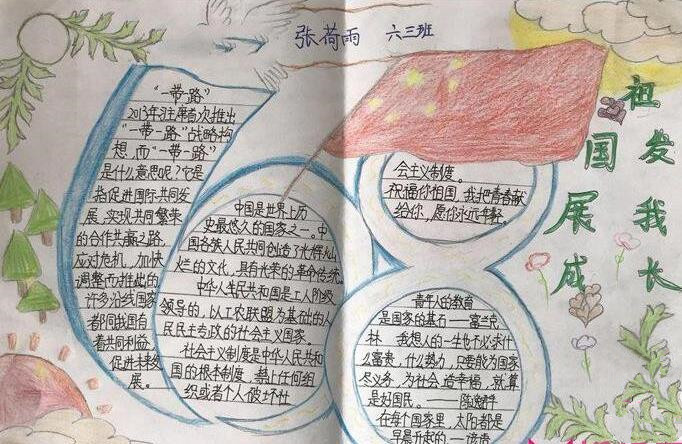 张荷雨 六三班
祖国发展我成长
"一带一路"
2013年习主席首次推出
"一带一路"战略构
想,而"一带一路"
是什么意思呢?它是
指促进国际共同发
展,实现共同繁荣
的合作共赢之路,
应对危机,加快
调整而推出的
许多沿线国家
都同我国有
着共同利益。
促进未来发
展。
中国是世界上历
史最悠久的国家之一。中
国各族人民共同创造了光辉火山
烂的文化,具有光荣的革命传统。
中华人民共和国是工人阶级
领导的,以工农联盟为基础的人
民民主专政的社会主义国家。
社会主义制度是中华人民共和
国的根本制度。禁止任何组
织或者个人破坏社
会主义制度。
祝福你祖国,我把青春献
给你,愿你永远年轻。
青年人的教育
是国家的基石——富兰克
林 我想人的一生也不必求什
么富贵,什么势力,只要能为国家
尽义务,为社会造幸福,就算
是好国民。——陶觉
在每个国家里,太阳都是
早晨升起的——谚语